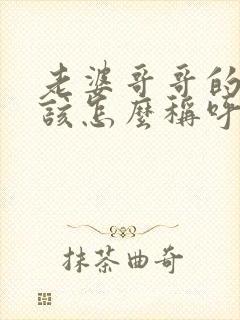 老婆哥哥的
該怎麼稱呼
抹茶曲奇